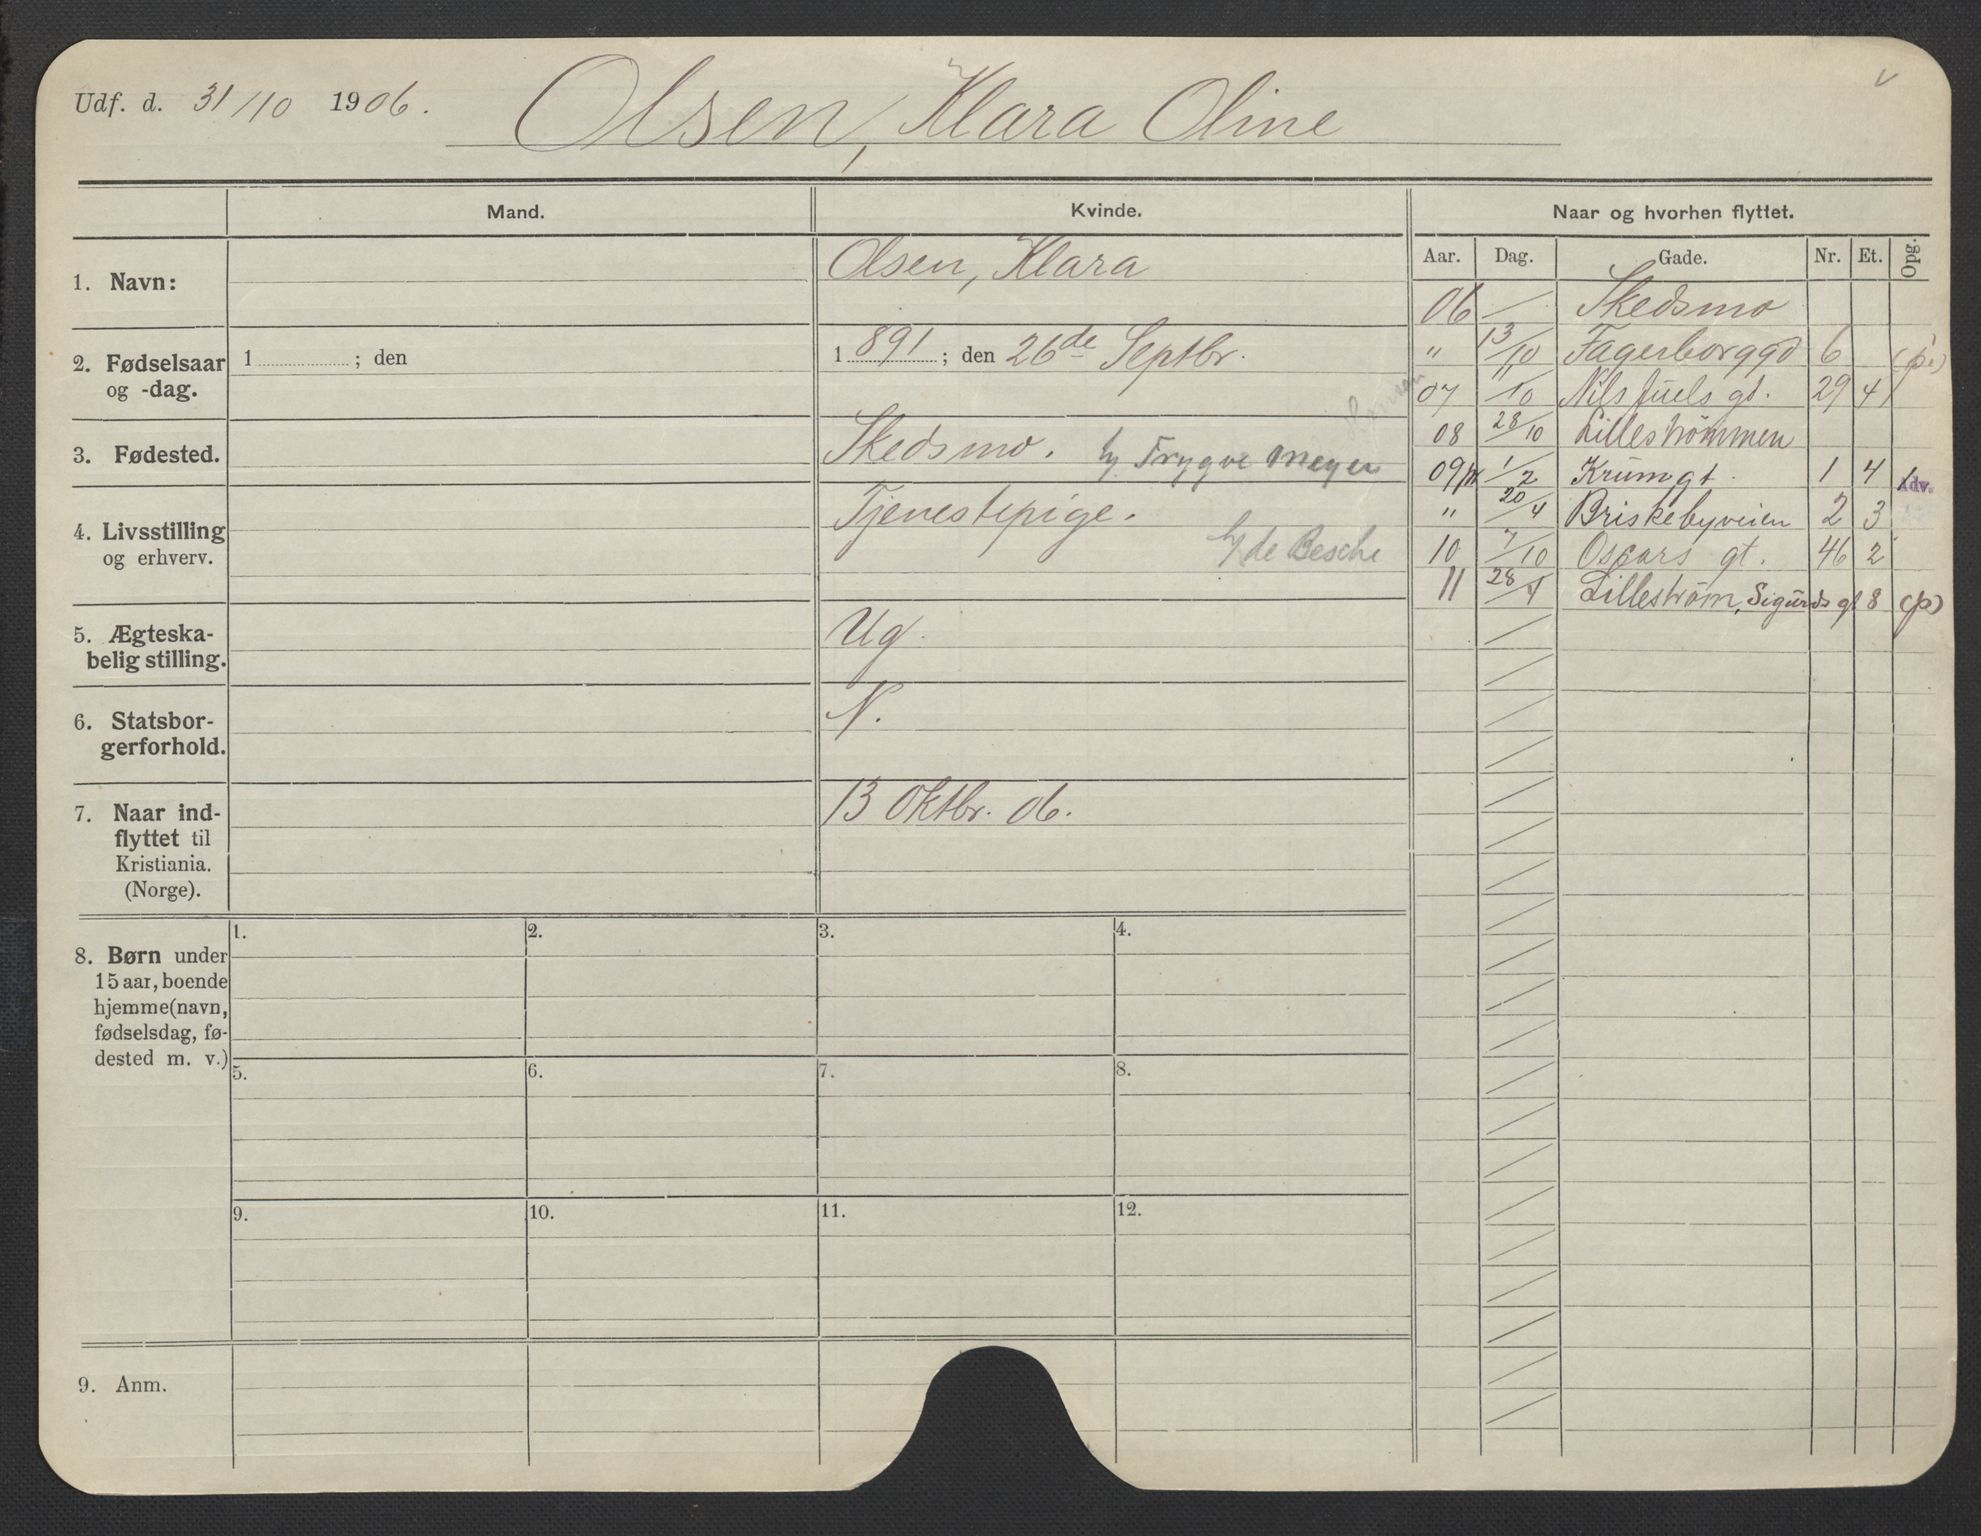 Udf. d. 31/10 1906. Olsen, Klara Oline
Mand. Kvinde. Naar og hvorhen flyttet.
Aar. Dag. Gade. Nr. Et. Opg.
1. Navn: Olsen, Klara
2. Fødselsaar og -dag. 1 ; den
1891 ; den 26de Septbr.
3. Fødested. Skedsmo. hj Trygve Meyer
4. Livsstilling og erhverv. Tjenestepige.
hj de Besche
5. Ægteska-
belig stilling. Ug.
6. Statsbor-
gerforhold. N.
7. Naar ind-
flyttet til
Kristiania.
(Norge).
13 Oktbr. 06.
06 / Skedsmo
" 13/10 Fagerborggd 6 (p.)
07 11/10 Nils Juels gt. 29 4
08 28/10 Lillestrømmen
09 1/2 Krumgt. 1 4 Adv.
" 20/4 Briskebyveien 2 3
10 7/10 Oscars gt. 46 2
11 28/4 Lillestrøm, Sigurds gt 8 (p)
8. Børn under
15 aar, boende
hjemme (navn,
fødselsdag, fø-
dested m. v.)
1. 2. 3. 4.
5. 6. 7. 8.
9. 10. 11. 12.
9. Anm.